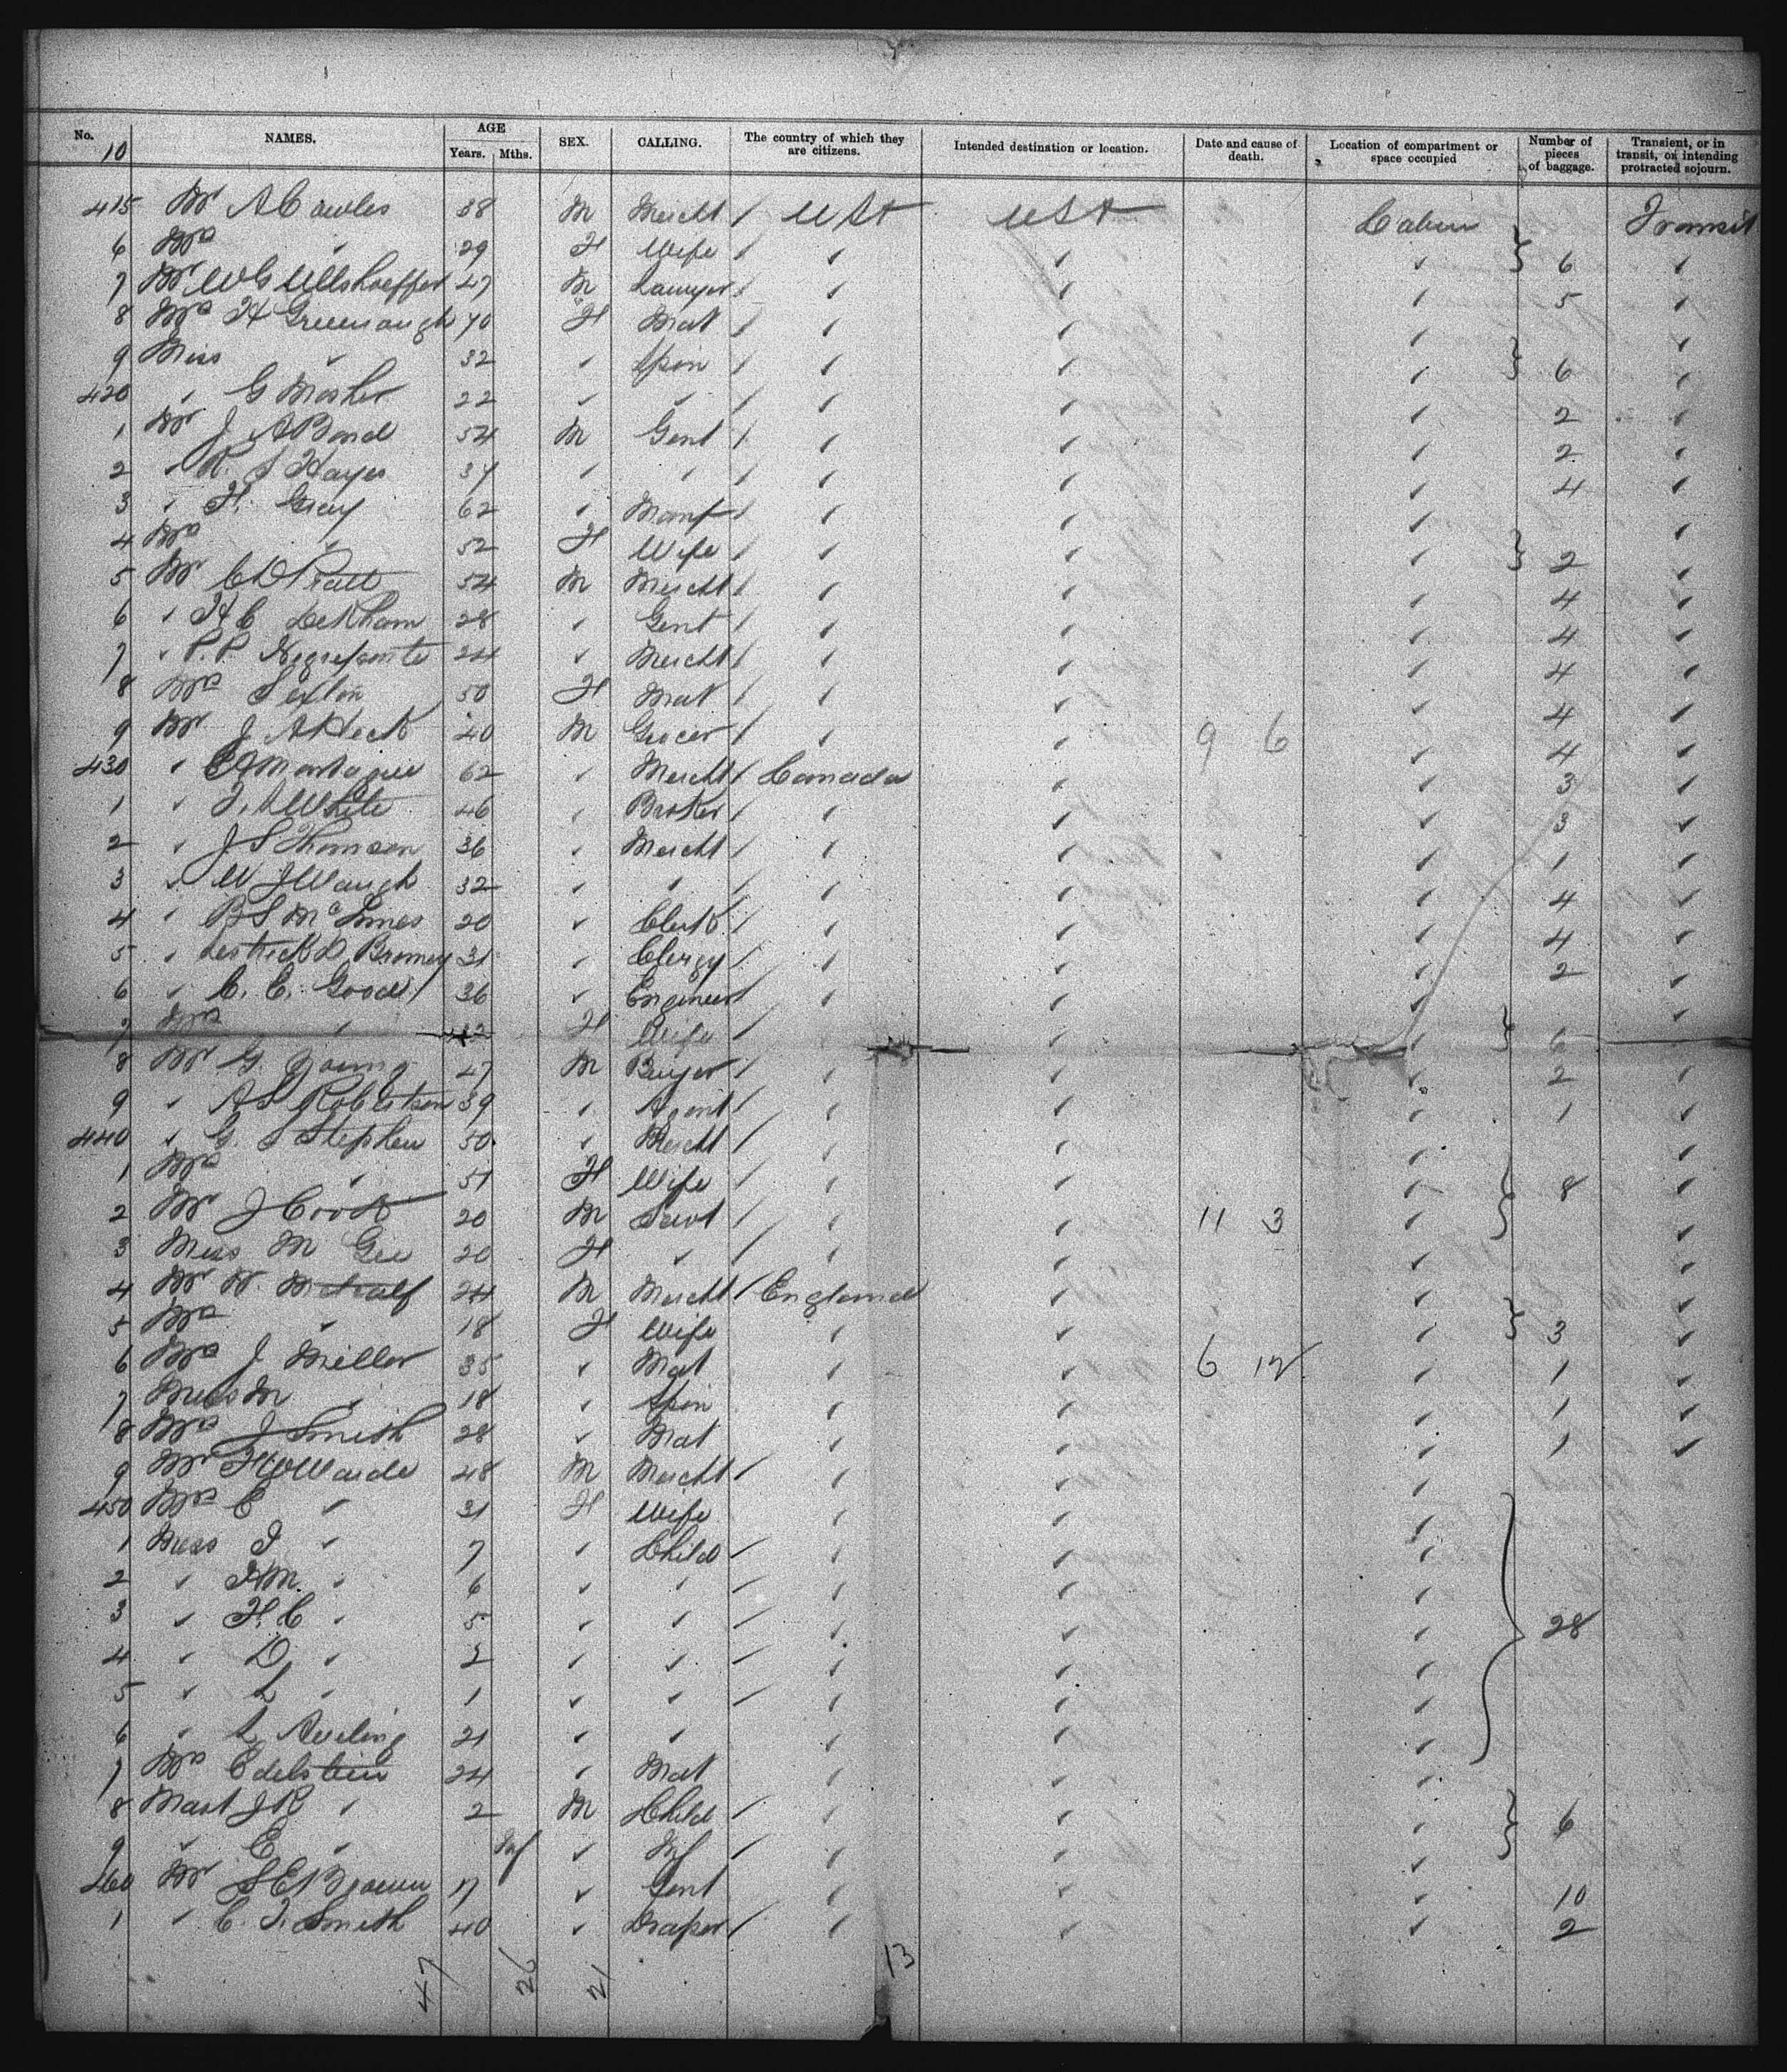 No. NAMES. AGE Years. Mths. SEX. CALLING. The country of which they are citizens. Intended destination or location. Date and cause of death. Location of compartment or space occupied Number of pieces of baggage. Transient, or in transit, or intending protracted sojourn.
10
415 Mr A Cowles 38 M Mercht / USA USA Cabin Transit
6 Mrs ✓ 29 F Wife / ✓ ✓ ✓ } 6 ✓
7 Mr W G Ullshoeffer 47 M Lawyer / ✓ ✓ ✓ 5 ✓
8 Mrs H Greenough 70 F Mat / ✓ ✓ ✓ ✓
9 Miss ✓ 32 ✓ Spin / ✓ ✓ ✓ } 6 ✓
420 ✓ G Mosher 22 ✓ ✓ / ✓ ✓ ✓ 2 ✓
1 Mr J A Bond 54 M Gent / ✓ ✓ ✓ 2 ✓
2 ✓ R. S Hayes 37 ✓ ✓ / ✓ ✓ ✓ 4 ✓
3 ✓ H. Gray 62 ✓ Manf / ✓ ✓ ✓ ✓
4 Mrs ✓ 52 F Wife / ✓ ✓ ✓ } 2 ✓
5 Mr C D Pratt 54 M Mercht / ✓ ✓ ✓ 4 ✓
6 ✓ H C DeKham 28 ✓ Gent / ✓ ✓ ✓ 4 ✓
7 ✓ P. P. Negreponte 24 ✓ Mercht / ✓ ✓ ✓ 4 ✓
8 Mrs Sexton 50 F Mat / ✓ ✓ ✓ 4 ✓
9 Mr J A Heck 40 M Grocer / ✓ ✓ 9 6 ✓ 4 ✓
430 ✓ Montague 62 ✓ Mercht / Canada ✓ ✓ 3 ✓
1 ✓ White 46 ✓ Broker / ✓ ✓ ✓ 3 ✓
2 ✓ J S Thomson 36 ✓ Mercht / ✓ ✓ ✓ 1 ✓
3 ✓ W J Waugh 32 ✓ ✓ / ✓ ✓ ✓ 4 ✓
4 ✓ B S McInnes 20 ✓ Clerk / ✓ ✓ ✓ 4 ✓
5 ✓ 31 ✓ Clergy / ✓ ✓ ✓ 2 ✓
6 ✓ C. E. Goad 36 ✓ Engineer / ✓ ✓ ✓ ✓
7 Mrs ✓ 32 F Wife / ✓ ✓ } 6
8 Mr G. Young 47 M Buyer / ✓ ✓ ✓ 2 ✓
9 ✓ A S Robertson 39 ✓ Agent / ✓ ✓ ✓ 1 ✓
440 ✓ G. S Stephen 50 ✓ Mercht / ✓ ✓ ✓ ✓
1 Mrs ✓ 51 F Wife / ✓ ✓ ✓ } 8 ✓
2 Mr J Cook 20 M Servt / ✓ ✓ 11 3 ✓ ✓
3 Miss M Gee 20 F ✓ / ✓ ✓ ✓ ✓
4 Mr W. Metcalf 24 M Mercht / England ✓ ✓ ✓
5 Mrs ✓ 18 F Wife ✓ ✓ ✓ } 3 ✓
6 Mrs J Miller 35 ✓ Mat ✓ ✓ 6 12 ✓ 1 ✓
7 Miss M ✓ 18 ✓ Spin ✓ ✓ ✓ 1 ✓
8 Mrs J Smith 28 ✓ Mat ✓ ✓ ✓ 1 ✓
9 Mr Warde 48 M Mercht / ✓ ✓ ✓
450 Mrs E ✓ 31 F Wife ✓ ✓ ✓
1 Miss I ✓ 7 ✓ Child / ✓ ✓ ✓
2 ✓ M. ✓ 6 ✓ ✓ / ✓ ✓ ✓
3 ✓ H. C ✓ 5 ✓ ✓ / ✓ ✓ ✓ } 28
4 ✓ D ✓ 2 ✓ ✓ / ✓ ✓ ✓
5 ✓ L ✓ 1 ✓ ✓ / ✓ ✓ ✓
6 ✓ L Aveling 21 ✓ ✓ ✓ ✓ ✓
7 Mrs Edelstein 24 ✓ Mat ✓ ✓ ✓
8 Mast J R ✓ 2 M Child / ✓ ✓ ✓ } 6
9 ✓ E ✓ Inf ✓ Inf / ✓ ✓ ✓
460 Mr S E Brown 17 ✓ Gent ✓ ✓ ✓ 10
1 ✓ C. J. Smith 40 ✓ Draper / ✓ ✓ ✓ 2
47 26 21 13